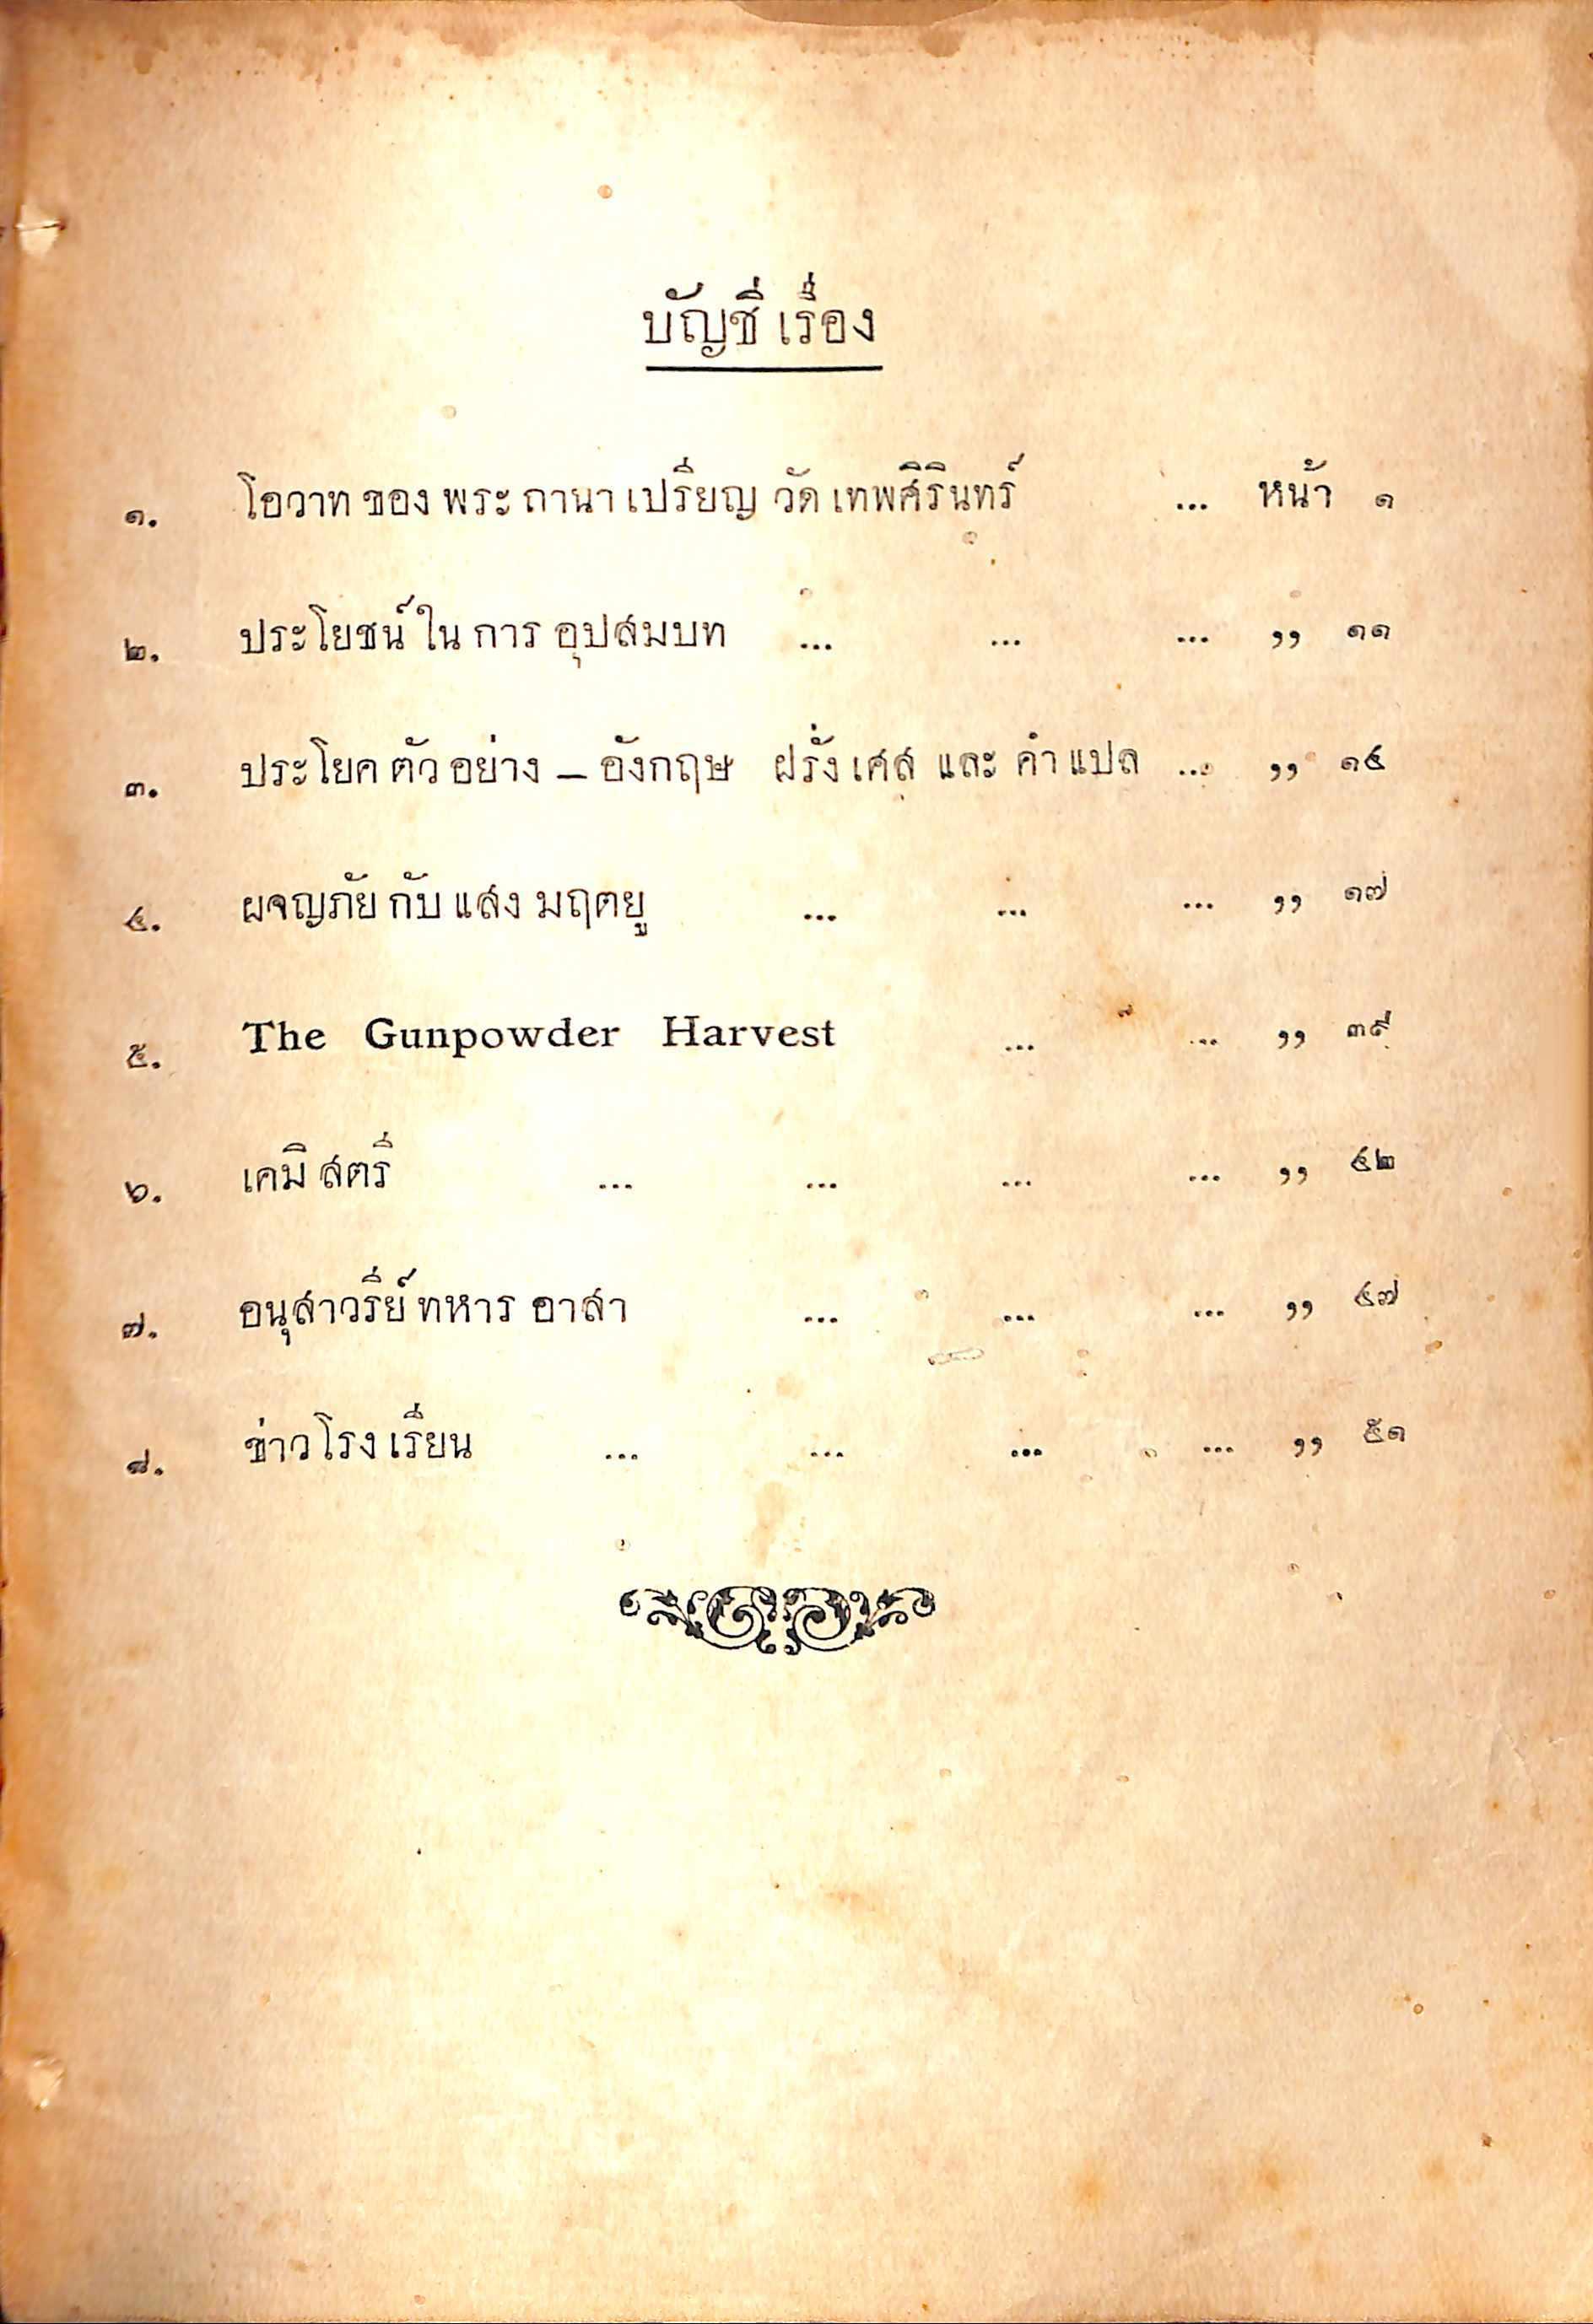 บัญชี เรื่อง
๑. โอวาท ของ พระ ถานา เปรียญ วัด เทพศิรินทร์ ... หน้า ๑
๒. ประโยชน์ ใน การ อุปสมบท ... ... ... ,, ๑๑
๓. ประโยค ตัว อย่าง — อังกฤษ ฝรั่ง เศส และ คำ แปล ... ,, ๑๔
๔. ผจญภัย กับ แสง มฤตยู ... ... ... ,, ๑๗
๕. The Gunpowder Harvest ... ... ,, ๓๙
๖. เคมี สตรี ... ... ... ... ,, ๔๒
๗. อนุสาวรีย์ ทหาร อาสา ... ... ... ,, ๔๗
๘. ข่าว โรง เรียน ... ... ... ... ,, ๕๑